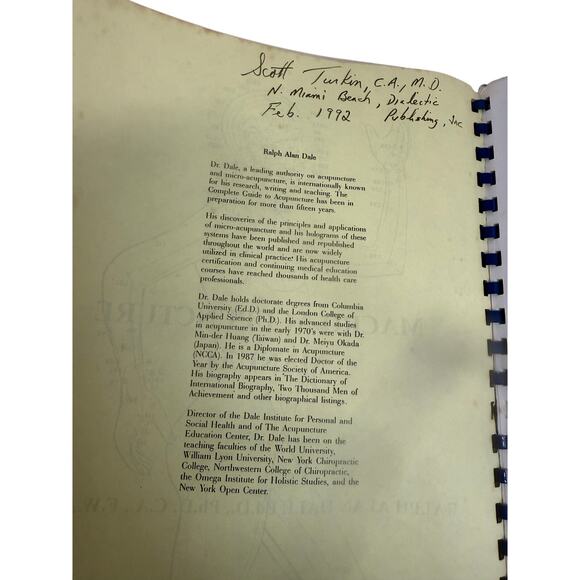 Scott Turkin, C.A., M.D.
N. Miami Beach, Dialectic
Feb. 1992 Publishing, Inc
Ralph Alan Dale
Dr. Dale, a leading authority on acupuncture
and micro-acupuncture, is internationally known
for his research, writing and teaching. The
Complete Guide to Acupuncture has been in
preparation for more than fifteen years.
His discoveries of the principles and applications
of micro-acupuncture and his holograms of these
systems have been published and republished
throughout the world and are now widely
utilized in clinical practice! His acupuncture
certification and continuing medical education
courses have reached thousands of health care
professionals.
Dr. Dale holds doctorate degrees from Columbia
University (Ed.D.) and the London College of
Applied Science (Ph.D.). His advanced studies
in acupuncture in the early 1970's were with Dr.
Min-der Huang (Taiwan) and Dr. Meiyu Okada
(Japan). He is a Diplomate in Acupuncture
(NCCA). In 1987 he was elected Doctor of the
Year by the Acupuncture Society of America.
His biography appears in The Dictionary of
International Biography, Two Thousand Men of
Achievement and other biographical listings.
Director of the Dale Institute for Personal and
Social Health and of The Acupuncture
Education Center, Dr. Dale has been on the
teaching faculties of the World University,
William Lyon University, New York Chiropractic
College, Northwestern College of Chiropractic,
the Omega Institute for Holistic Studies, and the
New York Open Center.